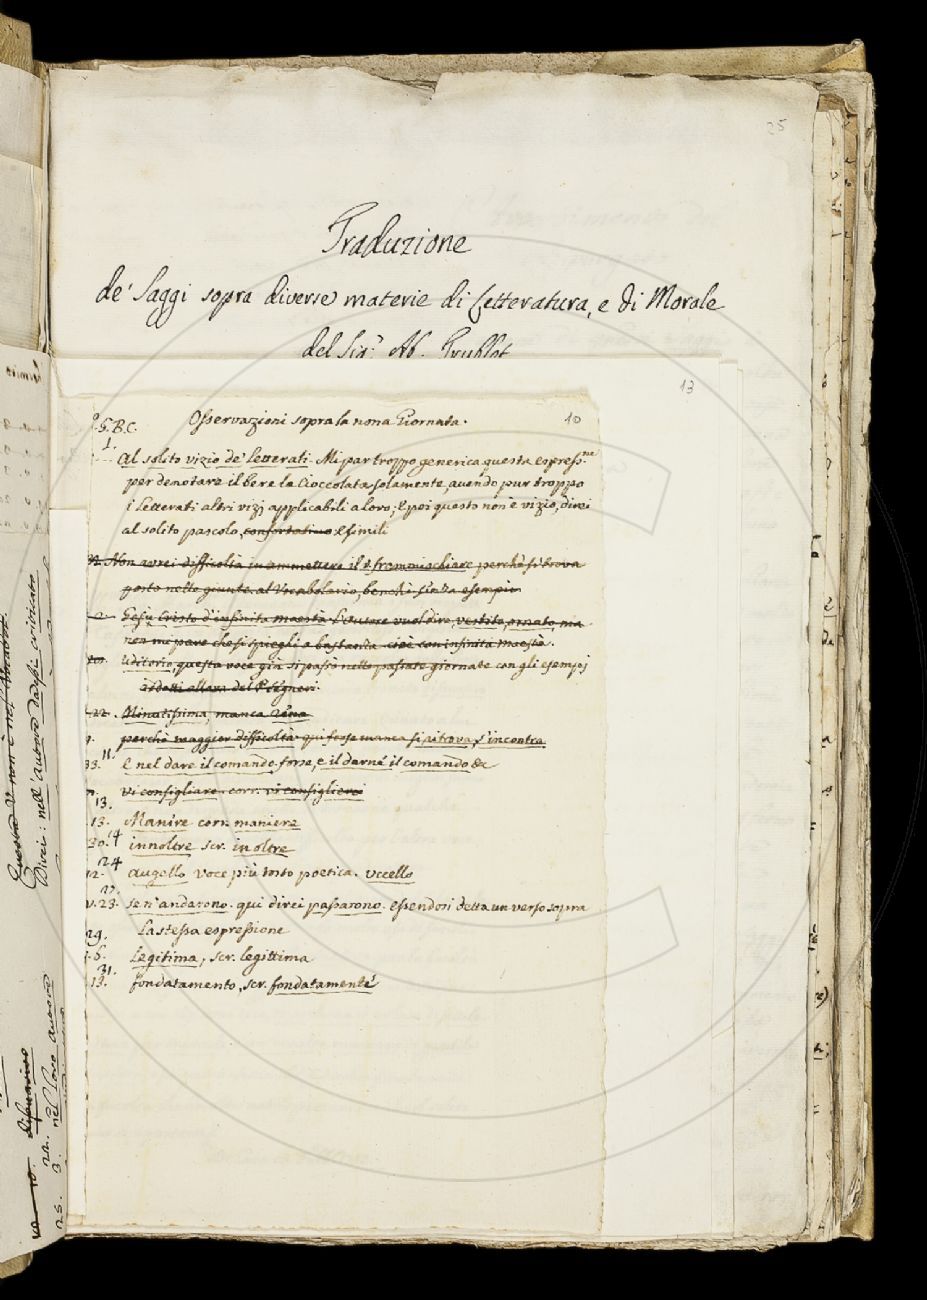 25
Traduzione
de' Saggi sopra diverse materie di Letteratura, e di Morale
del Sig.r Ab. Trublet
13
10
G.B.C. Osservazioni sopra la nona Giornata.
1. Al solito vizio de' Letterati. Mi par troppo generica questa espress.ne
per denotare il bere la Cioccolata solamente, avendo pur troppo
i Letterati altri vizj applicabili a loro; E poi questo non è vizio, direi
al solito pascolo, confortativo e simili
Non avrei difficoltà in ammettere il frammischiare perchè si trova
posto nelle giunte al Vocabolario, benchè senza esempio
2. Gesù Cristo d'infinita maestà L'Autore vuol dire, vestito, ornato, ma
non mi pare che si spieghi a bastanza cioè con infinita maestà.
Uditorio questa voce già si passò nelle passate giornate con gli esempj
addotti allora del P. Segneri.
22. Minutissima, manca
perchè maggior difficoltà qui forse manca si ritrova, s'incontra
11.
33. E nel dare il comando, forse, e il darne il comando &c
vi consigliare corr. vi consiglierei
13.
13. Manire corr. maniere
14
30. innoltre scr. inoltre
24
12. augello voce più tosto poetica. uccello
v. 23. se n'andarono. qui direi passarono. essendosi detta un verso sopra
La stessa espressione
29.
6. Legitima, scr. legittima
31.
13. fondatamento, scr. fondatamente
Direi: nell'Autore
25. 3. nel loro Autore